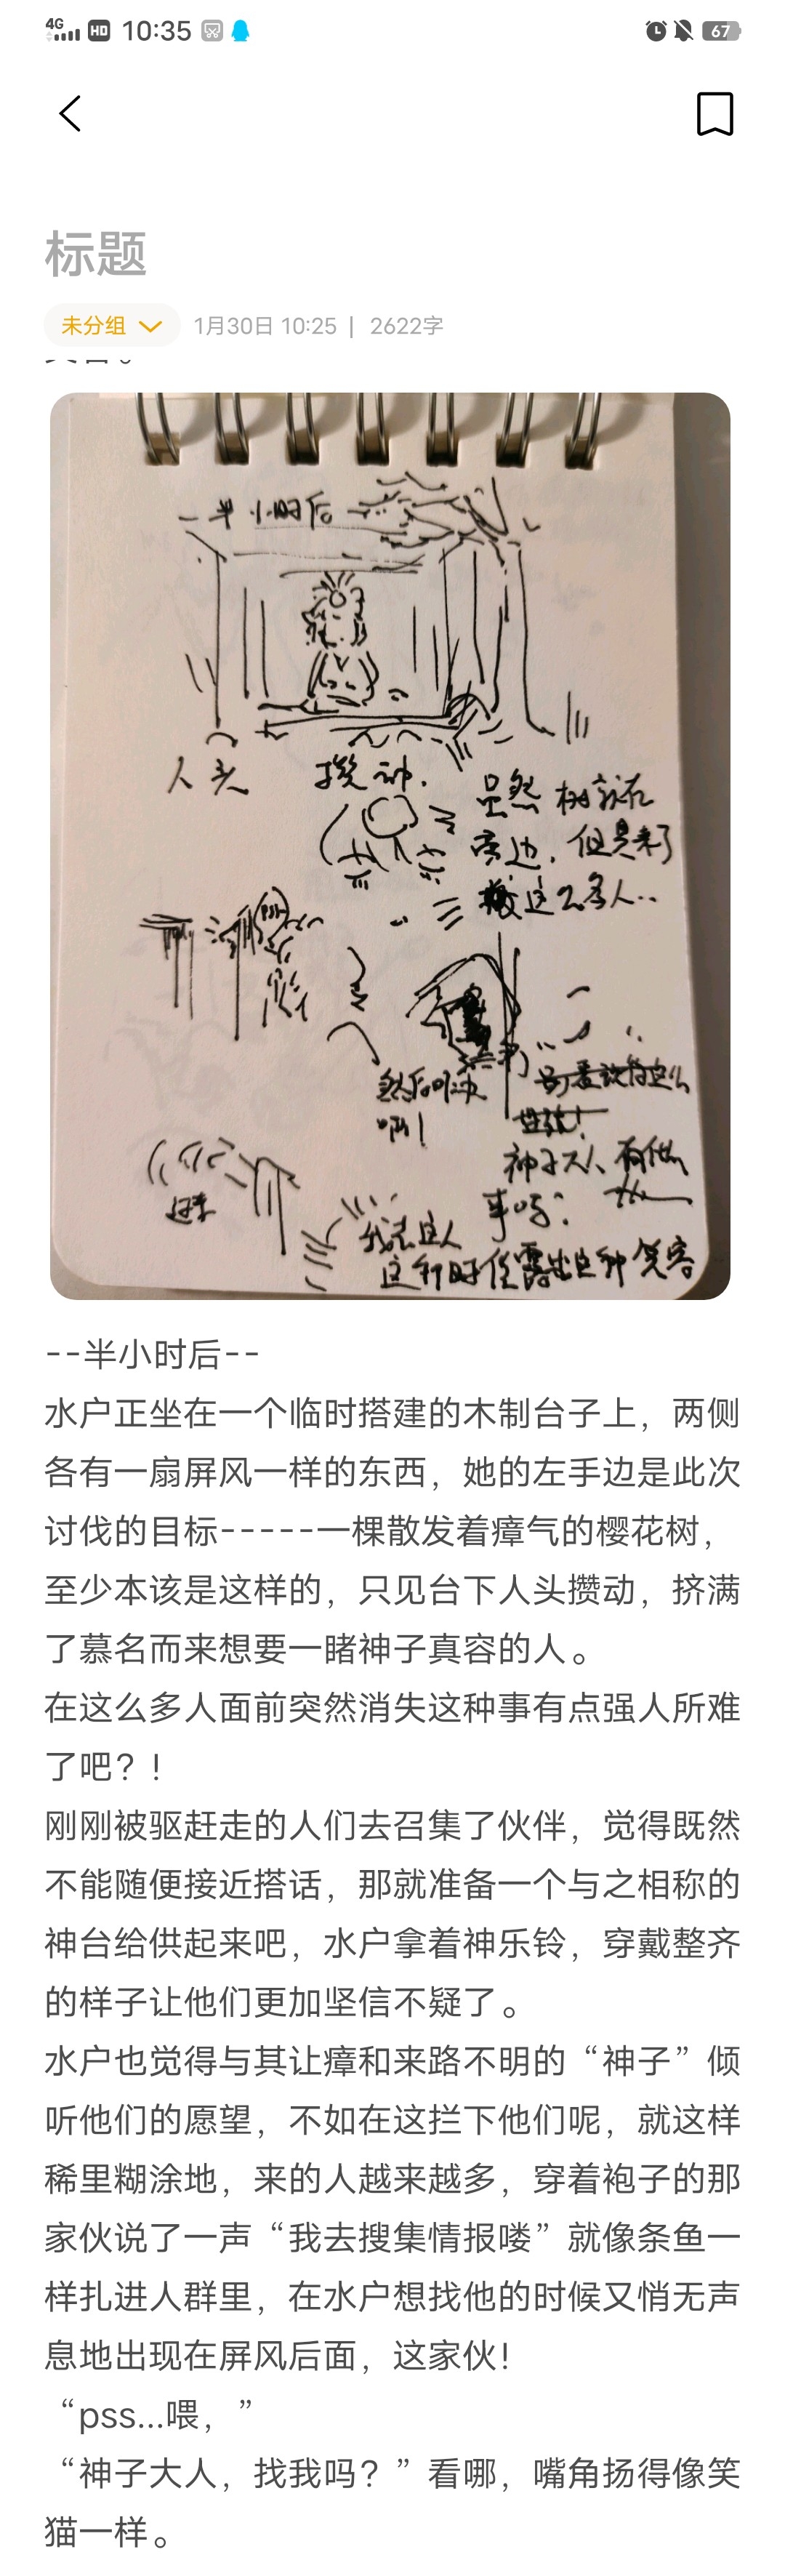 4G HD 10:35 67
标题
未分组 1月30日 10:25 | 2622字
一半小时后
人头 攒动.
虽然 树就在
旁边. 但是来了
这么多人..
pss
然后呢
啊!
神子大人 有什么
事吗?
过来
这种时候露出这种 笑容
--半小时后--
水户正坐在一个临时搭建的木制台子上，两侧
各有一扇屏风一样的东西，她的左手边是此次
讨伐的目标-----一棵散发着瘴气的樱花树，
至少本该是这样的，只见台下人头攒动，挤满
了慕名而来想要一睹神子真容的人。
在这么多人面前突然消失这种事有点强人所难
了吧？！
刚刚被驱赶走的人们去召集了伙伴，觉得既然
不能随便接近搭话，那就准备一个与之相称的
神台给供起来吧，水户拿着神乐铃，穿戴整齐
的样子让他们更加坚信不疑了。
水户也觉得与其让瘴和来路不明的“神子”倾
听他们的愿望，不如在这拦下他们呢，就这样
稀里糊涂地，来的人越来越多，穿着袍子的那
家伙说了一声“我去搜集情报喽”就像条鱼一
样扎进人群里，在水户想找他的时候又悄无声
息地出现在屏风后面，这家伙！
“pss...喂，”
“神子大人，找我吗？”看哪，嘴角扬得像笑
猫一样。